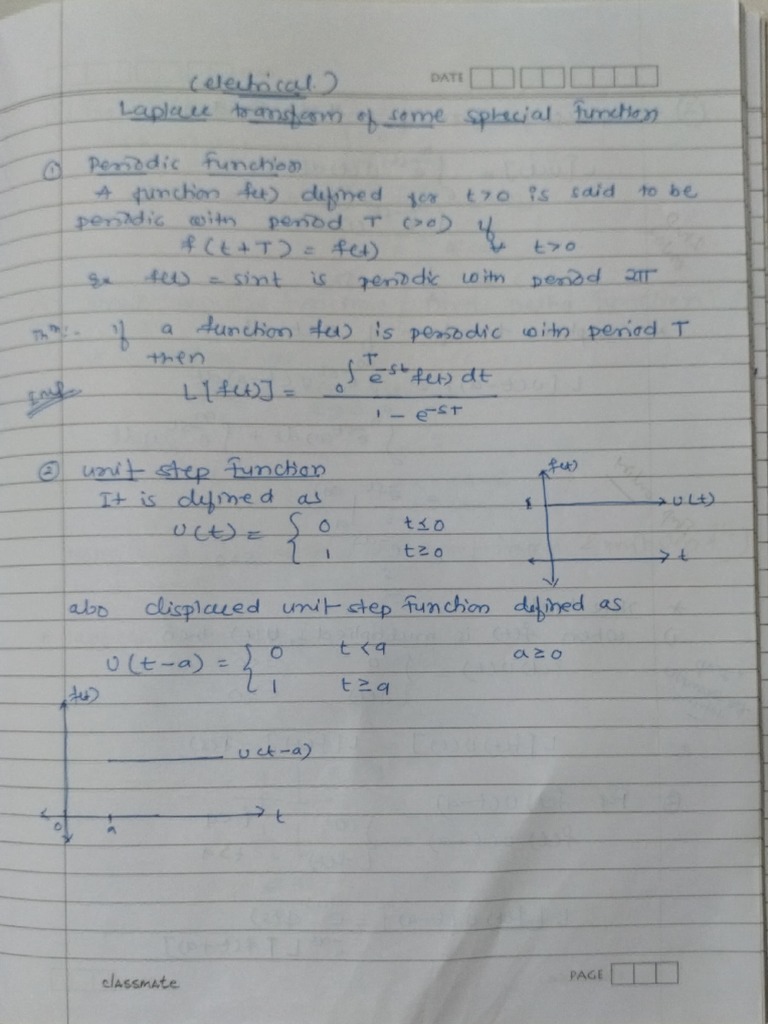 (electrical.)
DATE
Laplace transform of some sphecial function
① Periodic function
A function f(t) defined for t>0 is said to be
periodic with period T (>0) if
f(t+T) = f(t) ∀ t>0
Ex f(t) = sint is periodic with period 2π
Thm:- If a function f(t) is periodic with period T
then
Imp L[f(t)] = ₀∫ᵀ e^-st f(t) dt / 1 - e^-sT
② unit step function
It is defined as
U(t) = { 0 t≤0
1 t≥0
f(t)
1 U(t)
t
also displaced unit step function defined as
U(t-a) = { 0 t<a a≥0
1 t≥a
f(t)
U(t-a)
0 a t
classmate
PAGE